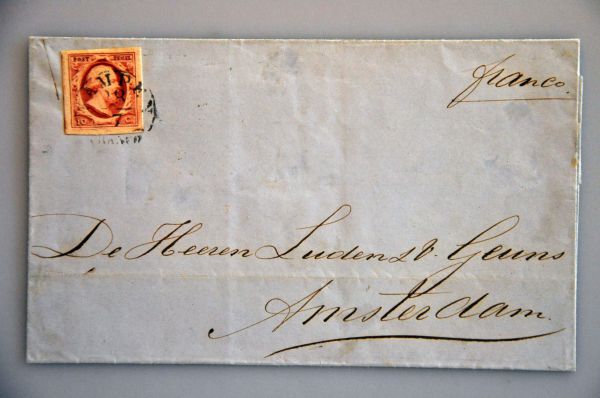 POST ZEGEL
10 C.
franco.
De Heeren Luden & v. Geuns
Amsterdam.